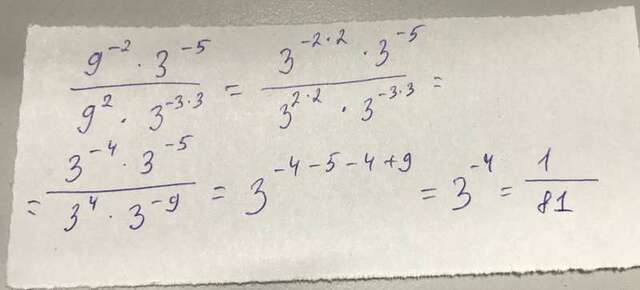 \frac{9^{-2} \cdot 3^{-5}}{9^{2} \cdot 3^{-3 \cdot 3}} = \frac{3^{-2 \cdot 2} \cdot 3^{-5}}{3^{2 \cdot 2} \cdot 3^{-3 \cdot 3}} =
= \frac{3^{-4} \cdot 3^{-5}}{3^{4} \cdot 3^{-9}} = 3^{-4-5-4+9} = 3^{-4} = \frac{1}{81}